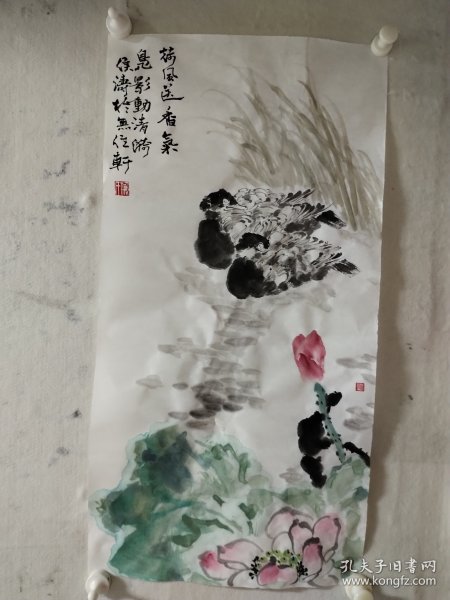 荷风送香氣
鳧影動清漪
侯濤於無住軒
孔夫子旧书网
www.kongfz.com